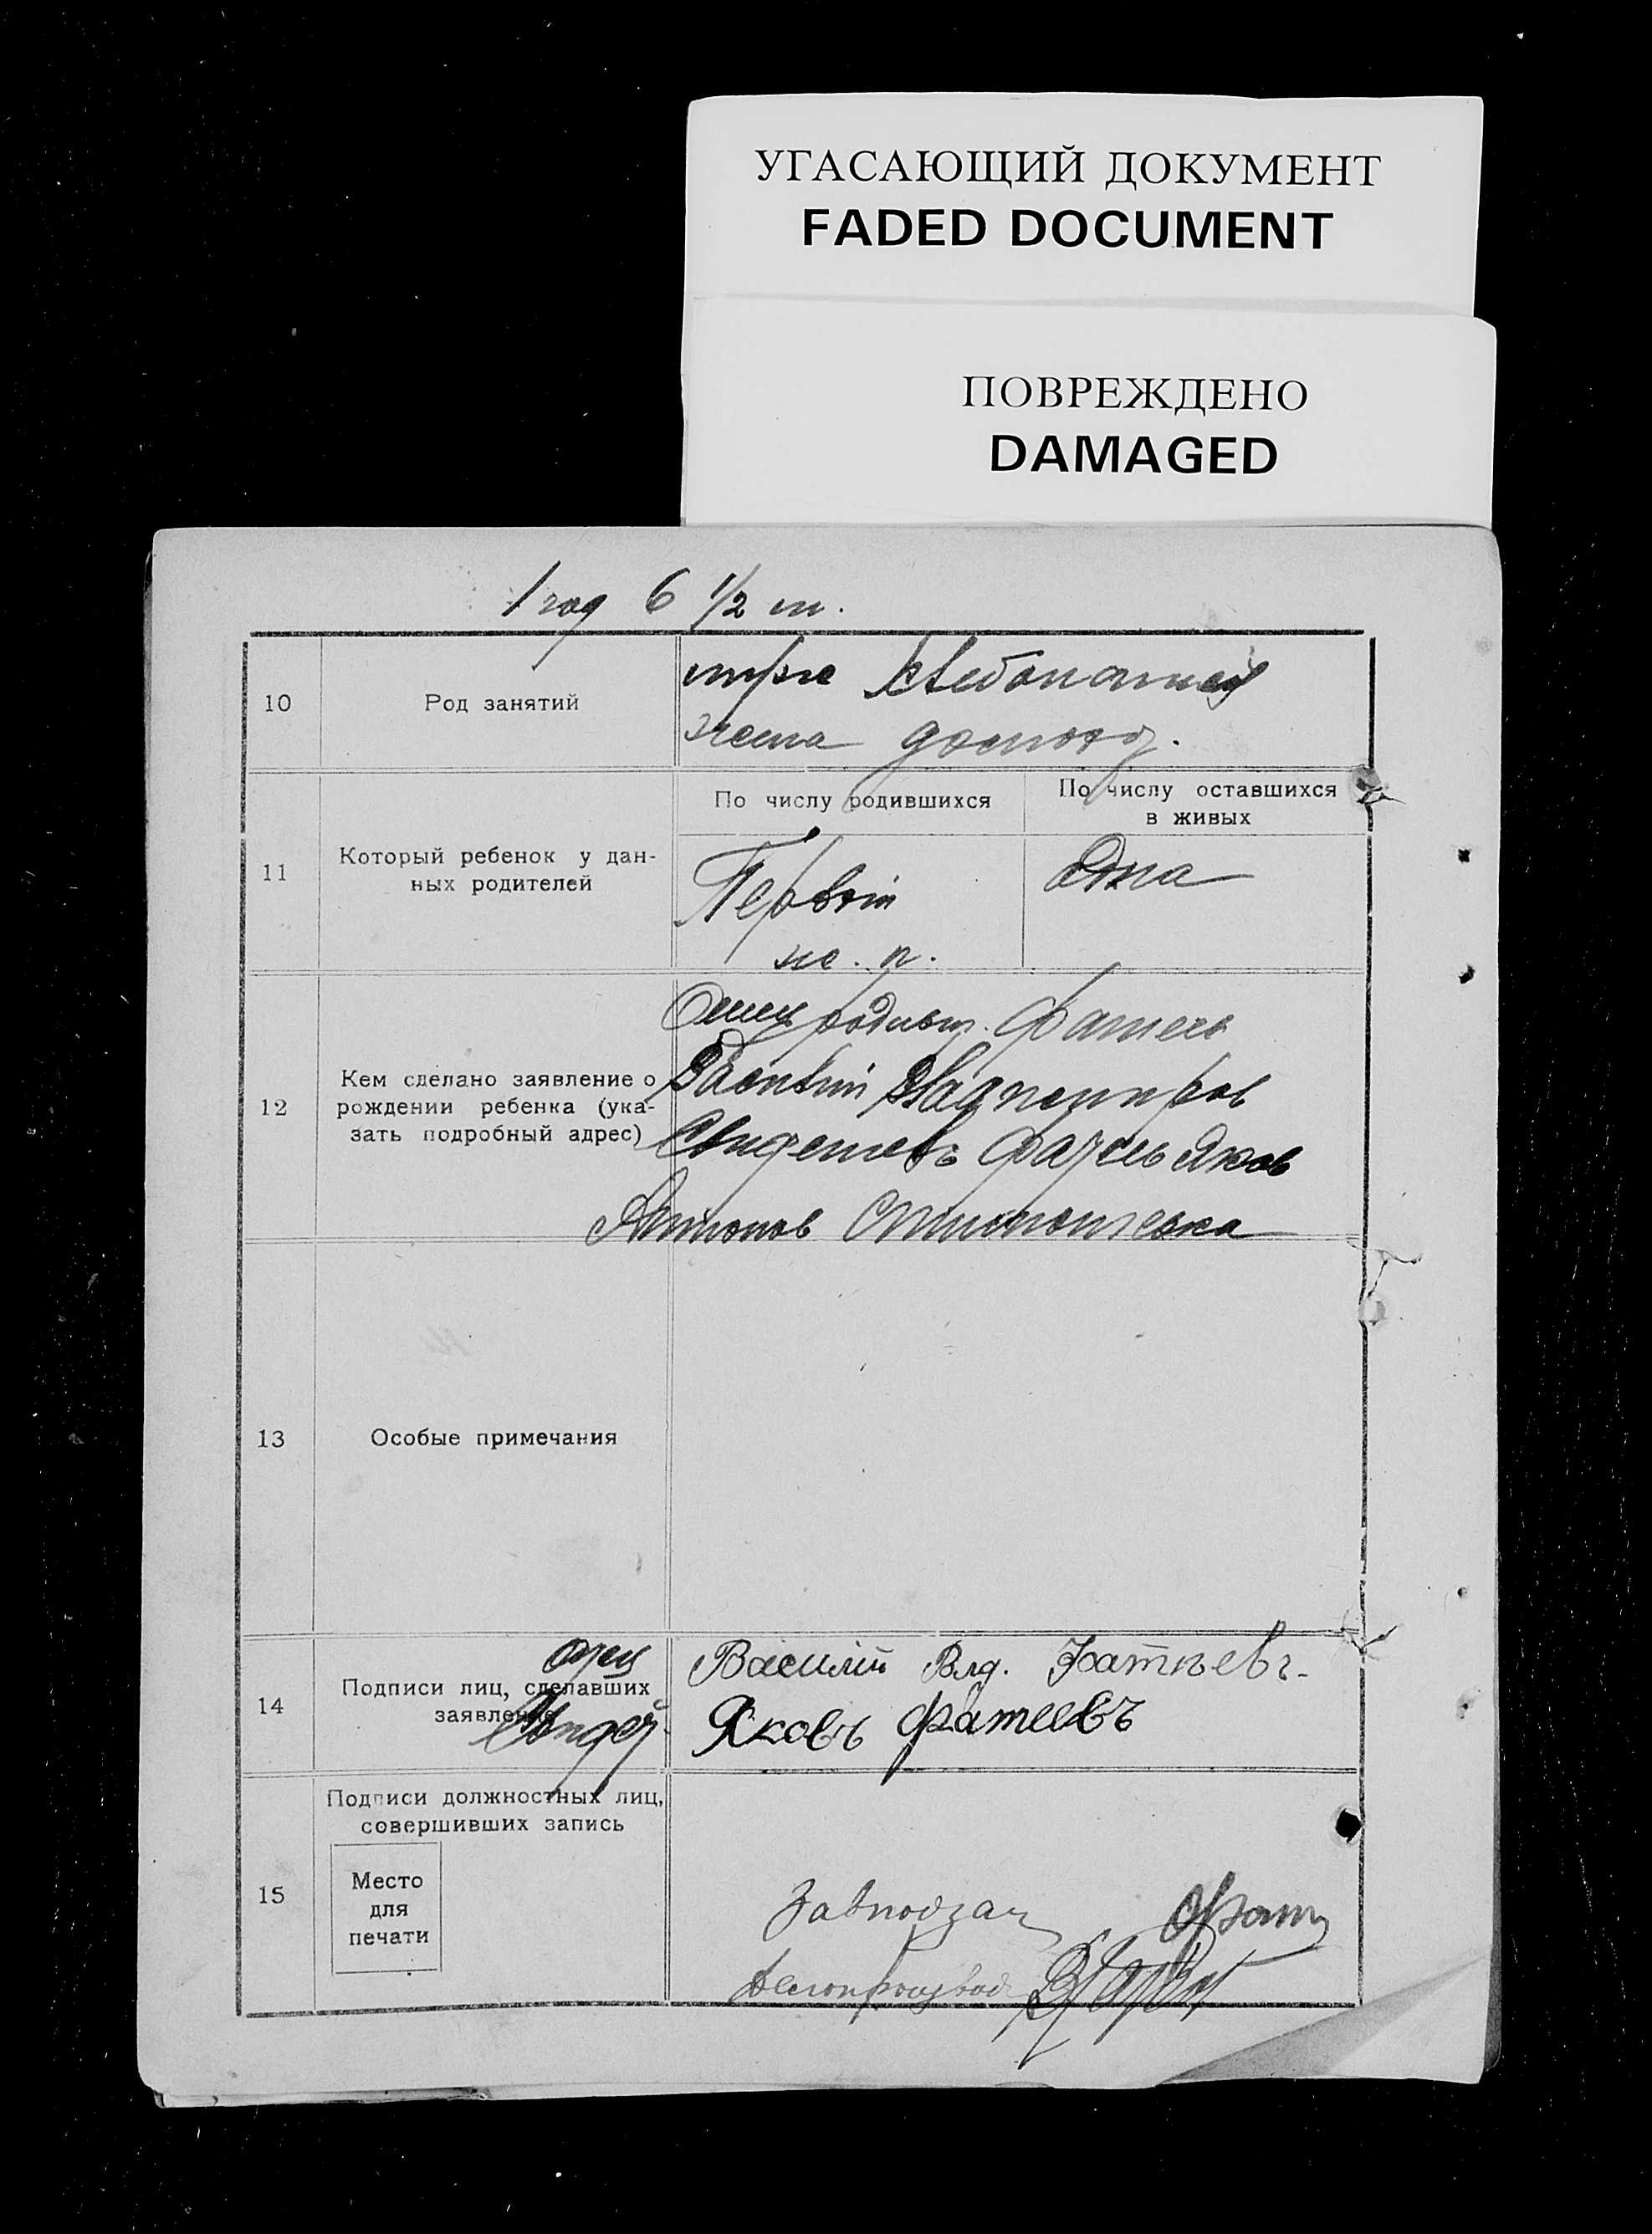 УГАСАЮЩИЙ ДОКУМЕНТ
FADED DOCUMENT
ПОВРЕЖДЕНО
DAMAGED
1 год 6 ½ м.
10
Род занятий
муж хлебопашец
жена домохоз.
11
Который ребенок у дан-
ных родителей
По числу родившихся
По числу оставшихся
в живых
Первый
ж. п.
одна
12
Кем сделано заявление о
рождении ребенка (ука-
зать подробный адрес)
Отец родивш. Фатеев
Василий Владимиров
Свидетель Фатеев Яков
Антонов
13
Особые примечания
14
Подписи лиц, сделавших
заявление
отец
Свидет.
Василий Влд. Фатњевъ
Яковъ Фатеевъ
15
Подписи должностных лиц,
совершивших запись
Место
для
печати
Завподзаг
Делопроизвод